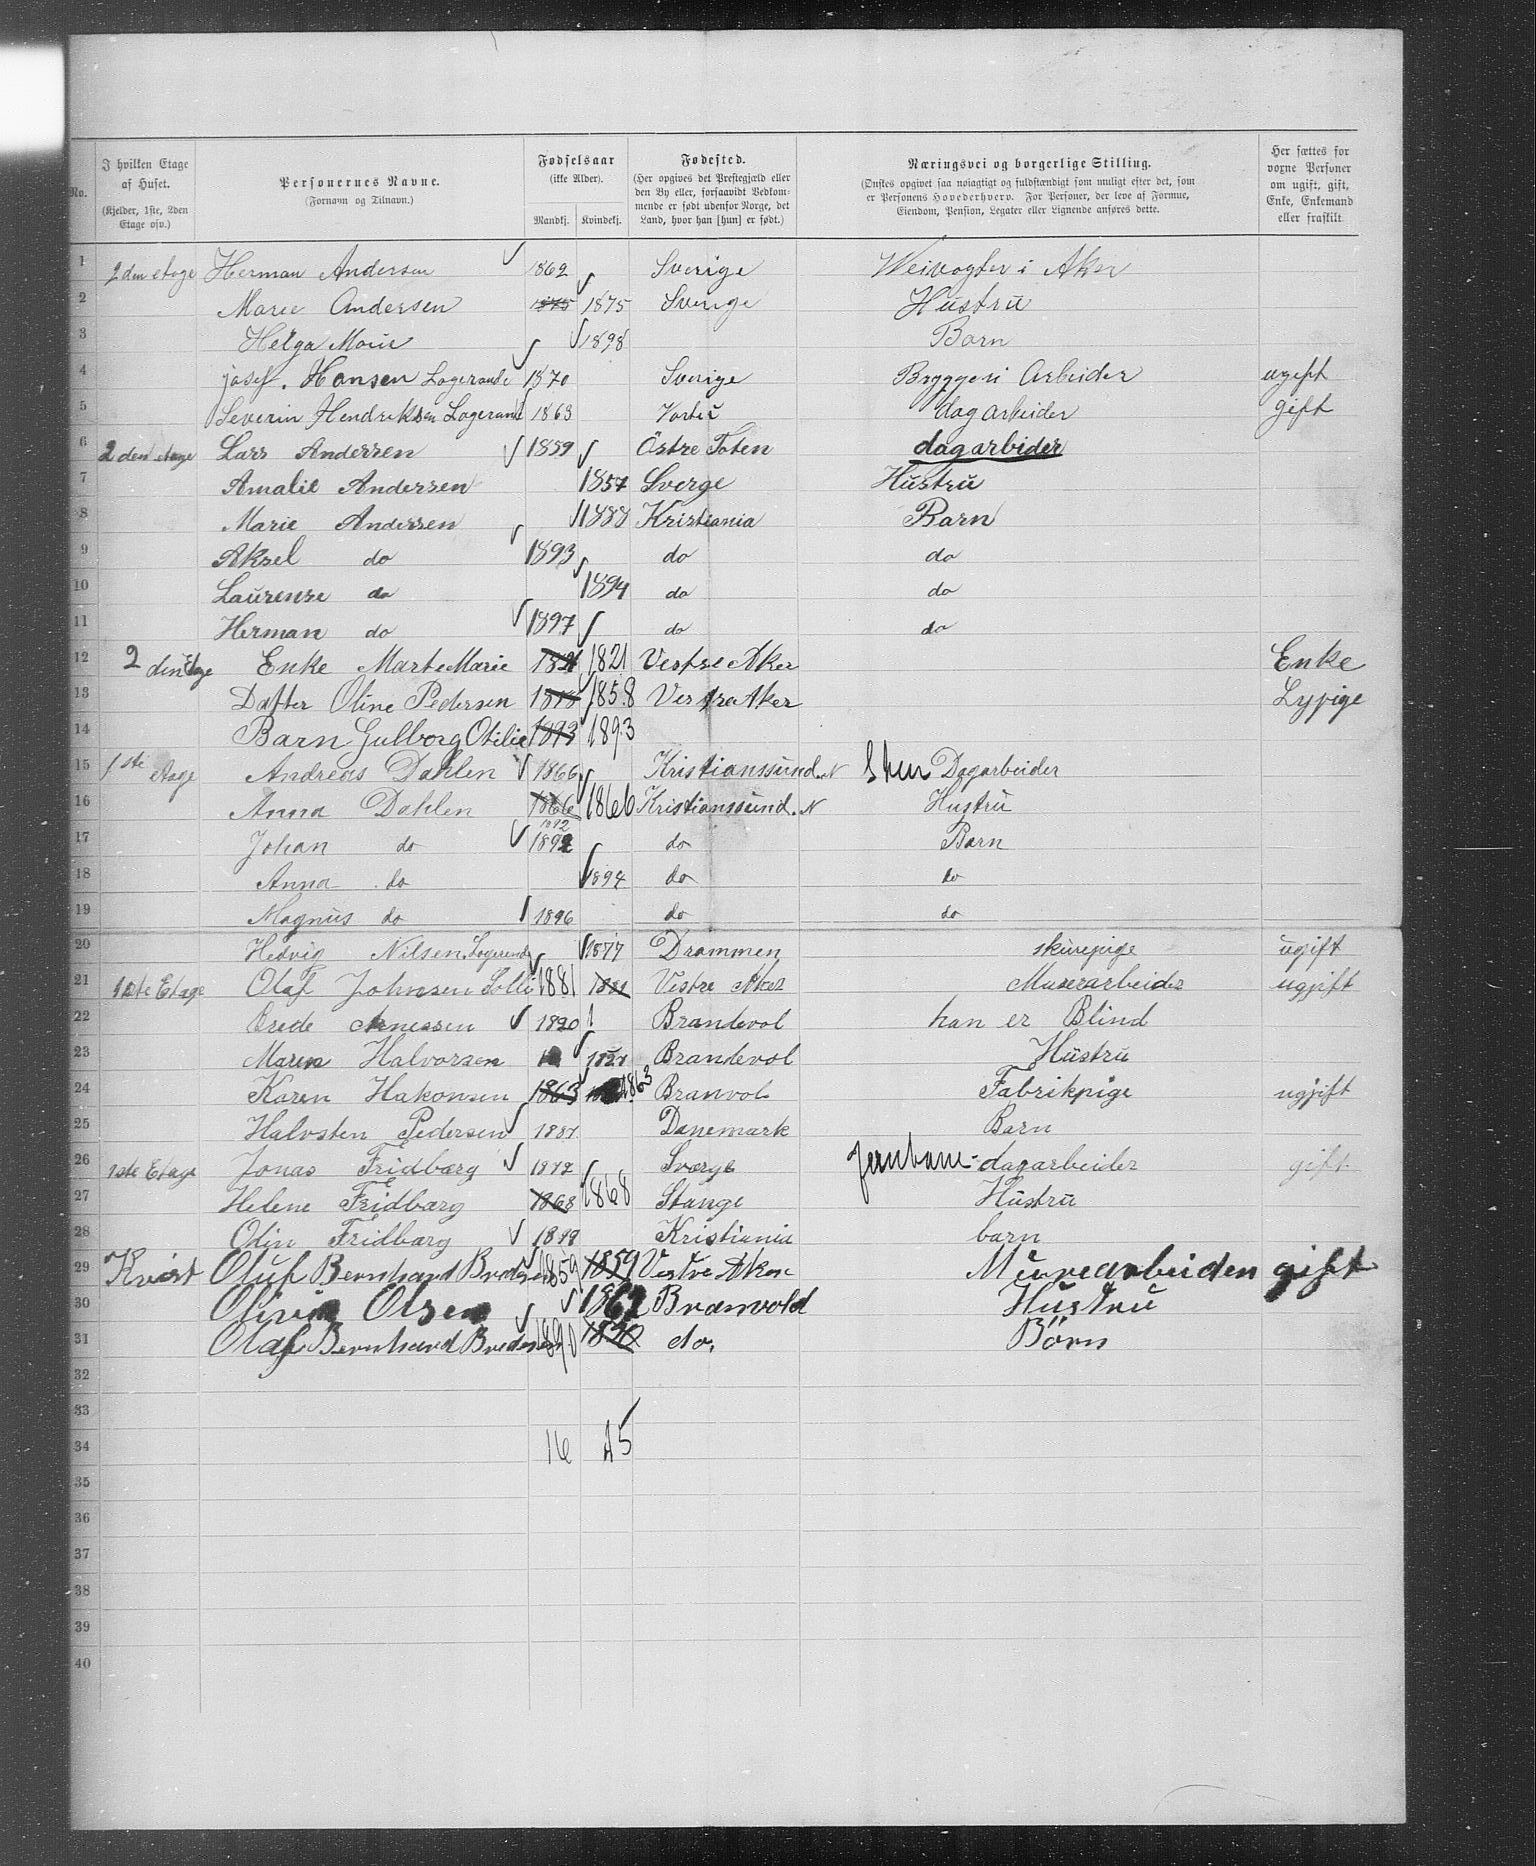 No. | I hvilken Etage af Huset. (Kjelder, 1ste, 2den Etage osv.) | Personernes Navne. (Fornavn og Tilnavn.) | Fødselsaar (ikke Alder). Mandkj. | Kvindekj. | Fødested. (Her opgives det Prestegjæld eller den By eller, forsaavidt Vedkommende er født udenfor Norge, det Land, hvor han [hun] er født.) | Næringsvei og borgerlige Stilling. (Ønskes opgivet saa nøiagtigt og fuldstændigt som muligt efter det, som er Personens Hovederhverv. For Personer, der leve af Formue, Eiendom, Pension, Legater eller Lignende anføres dette.) | Her sættes for voxne Personer om ugift, gift, Enke, Enkemand eller fraskilt
1 2 den etage Herman Andersen 1862 Sverige Weivogter i Aker
2 Marie Andersen 1875 1875 Sverige Hustru
3 Helga Marie 1898 Barn
4 josef. Hansen Logerande 1870 Sverige Bryggeri Arbeider ugift
5 Severin Hendriksen Logerand 1863 dagarbeider gift
6 2 den etage Lars Andersen 1859 Östre Toten dagarbider
7 Amalie Andersen 1857 Sverge Hustru
8 Marie Andersen 1888 Kristiania Barn
9 Aksel do 1893 do do
10 Laurense do 1894 do do
11 Herman do 1897 do do
12 2 den Etage Enke Marte Marie 1821 1821 Vestre Aker Enke
13 Datter Oline Pedersen 1858 Vestre Aker
14 Barn Gulborg Otilie 1893 1893
15 1ste etage Andreas Dahlen 1866 Kristianssund.N Sten Dagarbeider
16 Anna Dahlen 1866 1866 Kristianssund.N Hustru
17 Johan do 1892 1892 do Barn
18 Anna do 1894 do do
19 Magnus do 1896 do do
20 Hedvig Nilsen Logerende 1877 Drammen skurepige ugift
21 1ste Etage Olaf Johnsen Solli 1881 1881 Vestre Aker Murerarbeider ugjift
22 Brede Arnessen 1820 Brandevol han er Blind
23 Maren Halvorsen 1821 Brandevol Hustru
24 Karen Hakonsen 1863 1863 Branvol Fabrikpige ugjift
25 Halvsten Pedersen 1887 Danemark Barn
26 1ste Etage Jonas Fridbarg 1872 Sverge Jernbane-dagarbeider gift
27 Helene Fridbarg 1868 1868 Stange Hustru
28 Odin Fridbarg 1899 Kristiania barn
29 Kvist Oluf Bernhard Bredesen 1859 1859 Vestre Aker Murearbeider gift
30 Olivia Olsen 1862 Branvold Hustru
31 Olaf Bernhard Bredesen 1890 1890 do. Børn
32
33
34 16 15
35
36
37
38
39
40